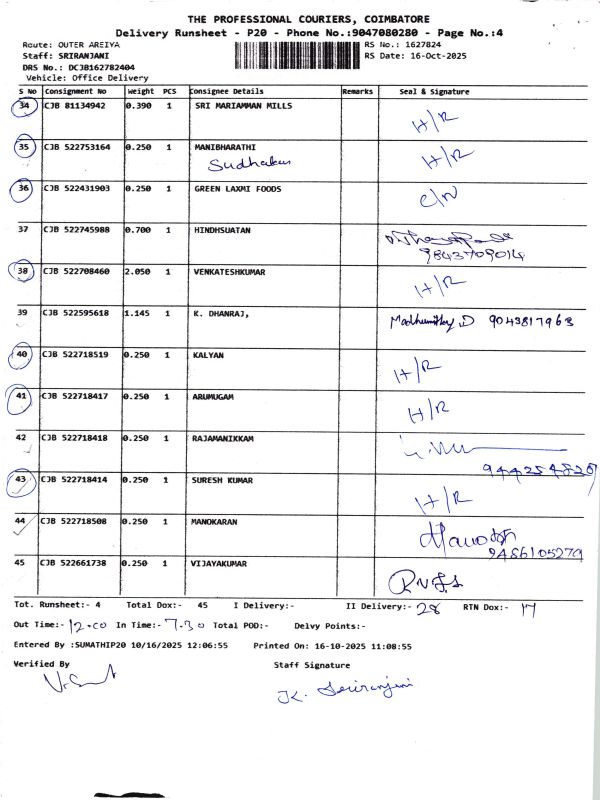 THE PROFESSIONAL COURIERS, COIMBATORE
Delivery Runsheet - P20 - Phone No.:9047080280 - Page No.:4
Route: OUTER AREIYA RS No.: 1627824
Staff: SRIRANJANI RS Date: 16-Oct-2025
DRS No.: DCJB162782404
Vehicle: Office Delivery
S No Consignment No Weight PCS Consignee Details Remarks Seal & Signature
34 CJB 81134942 0.390 1 SRI MARIAMMAN MILLS H/R
35 CJB 522753164 0.250 1 MANIBHARATHI H/R
Sudhakar
36 CJB 522431903 0.250 1 GREEN LAXMI FOODS C/N
37 CJB 522745988 0.700 1 HINDHSUATAN
9843709014
38 CJB 522708460 2.050 1 VENKATESHKUMAR H/R
39 CJB 522595618 1.145 1 K. DHANRAJ, Madhumithy.D 9043817963
40 CJB 522718519 0.250 1 KALYAN H/R
41 CJB 522718417 0.250 1 ARUMUGAM H/R
42 CJB 522718418 0.250 1 RAJAMANIKKAM
43 CJB 522718414 0.250 1 SURESH KUMAR H/R
44 CJB 522718508 0.250 1 MANOKARAN
9486105279
45 CJB 522661738 0.250 1 VIJAYAKUMAR
Tot. Runsheet:- 4 Total Dox:- 45 I Delivery:- II Delivery:- 28 RTN Dox:- 17
Out Time:- 12.00 In Time:- 7.30 Total POD:- Delvy Points:-
Entered By :SUMATHIP20 10/16/2025 12:06:55 Printed On: 16-10-2025 11:08:55
Verified By Staff Signature
K. Sriranjini